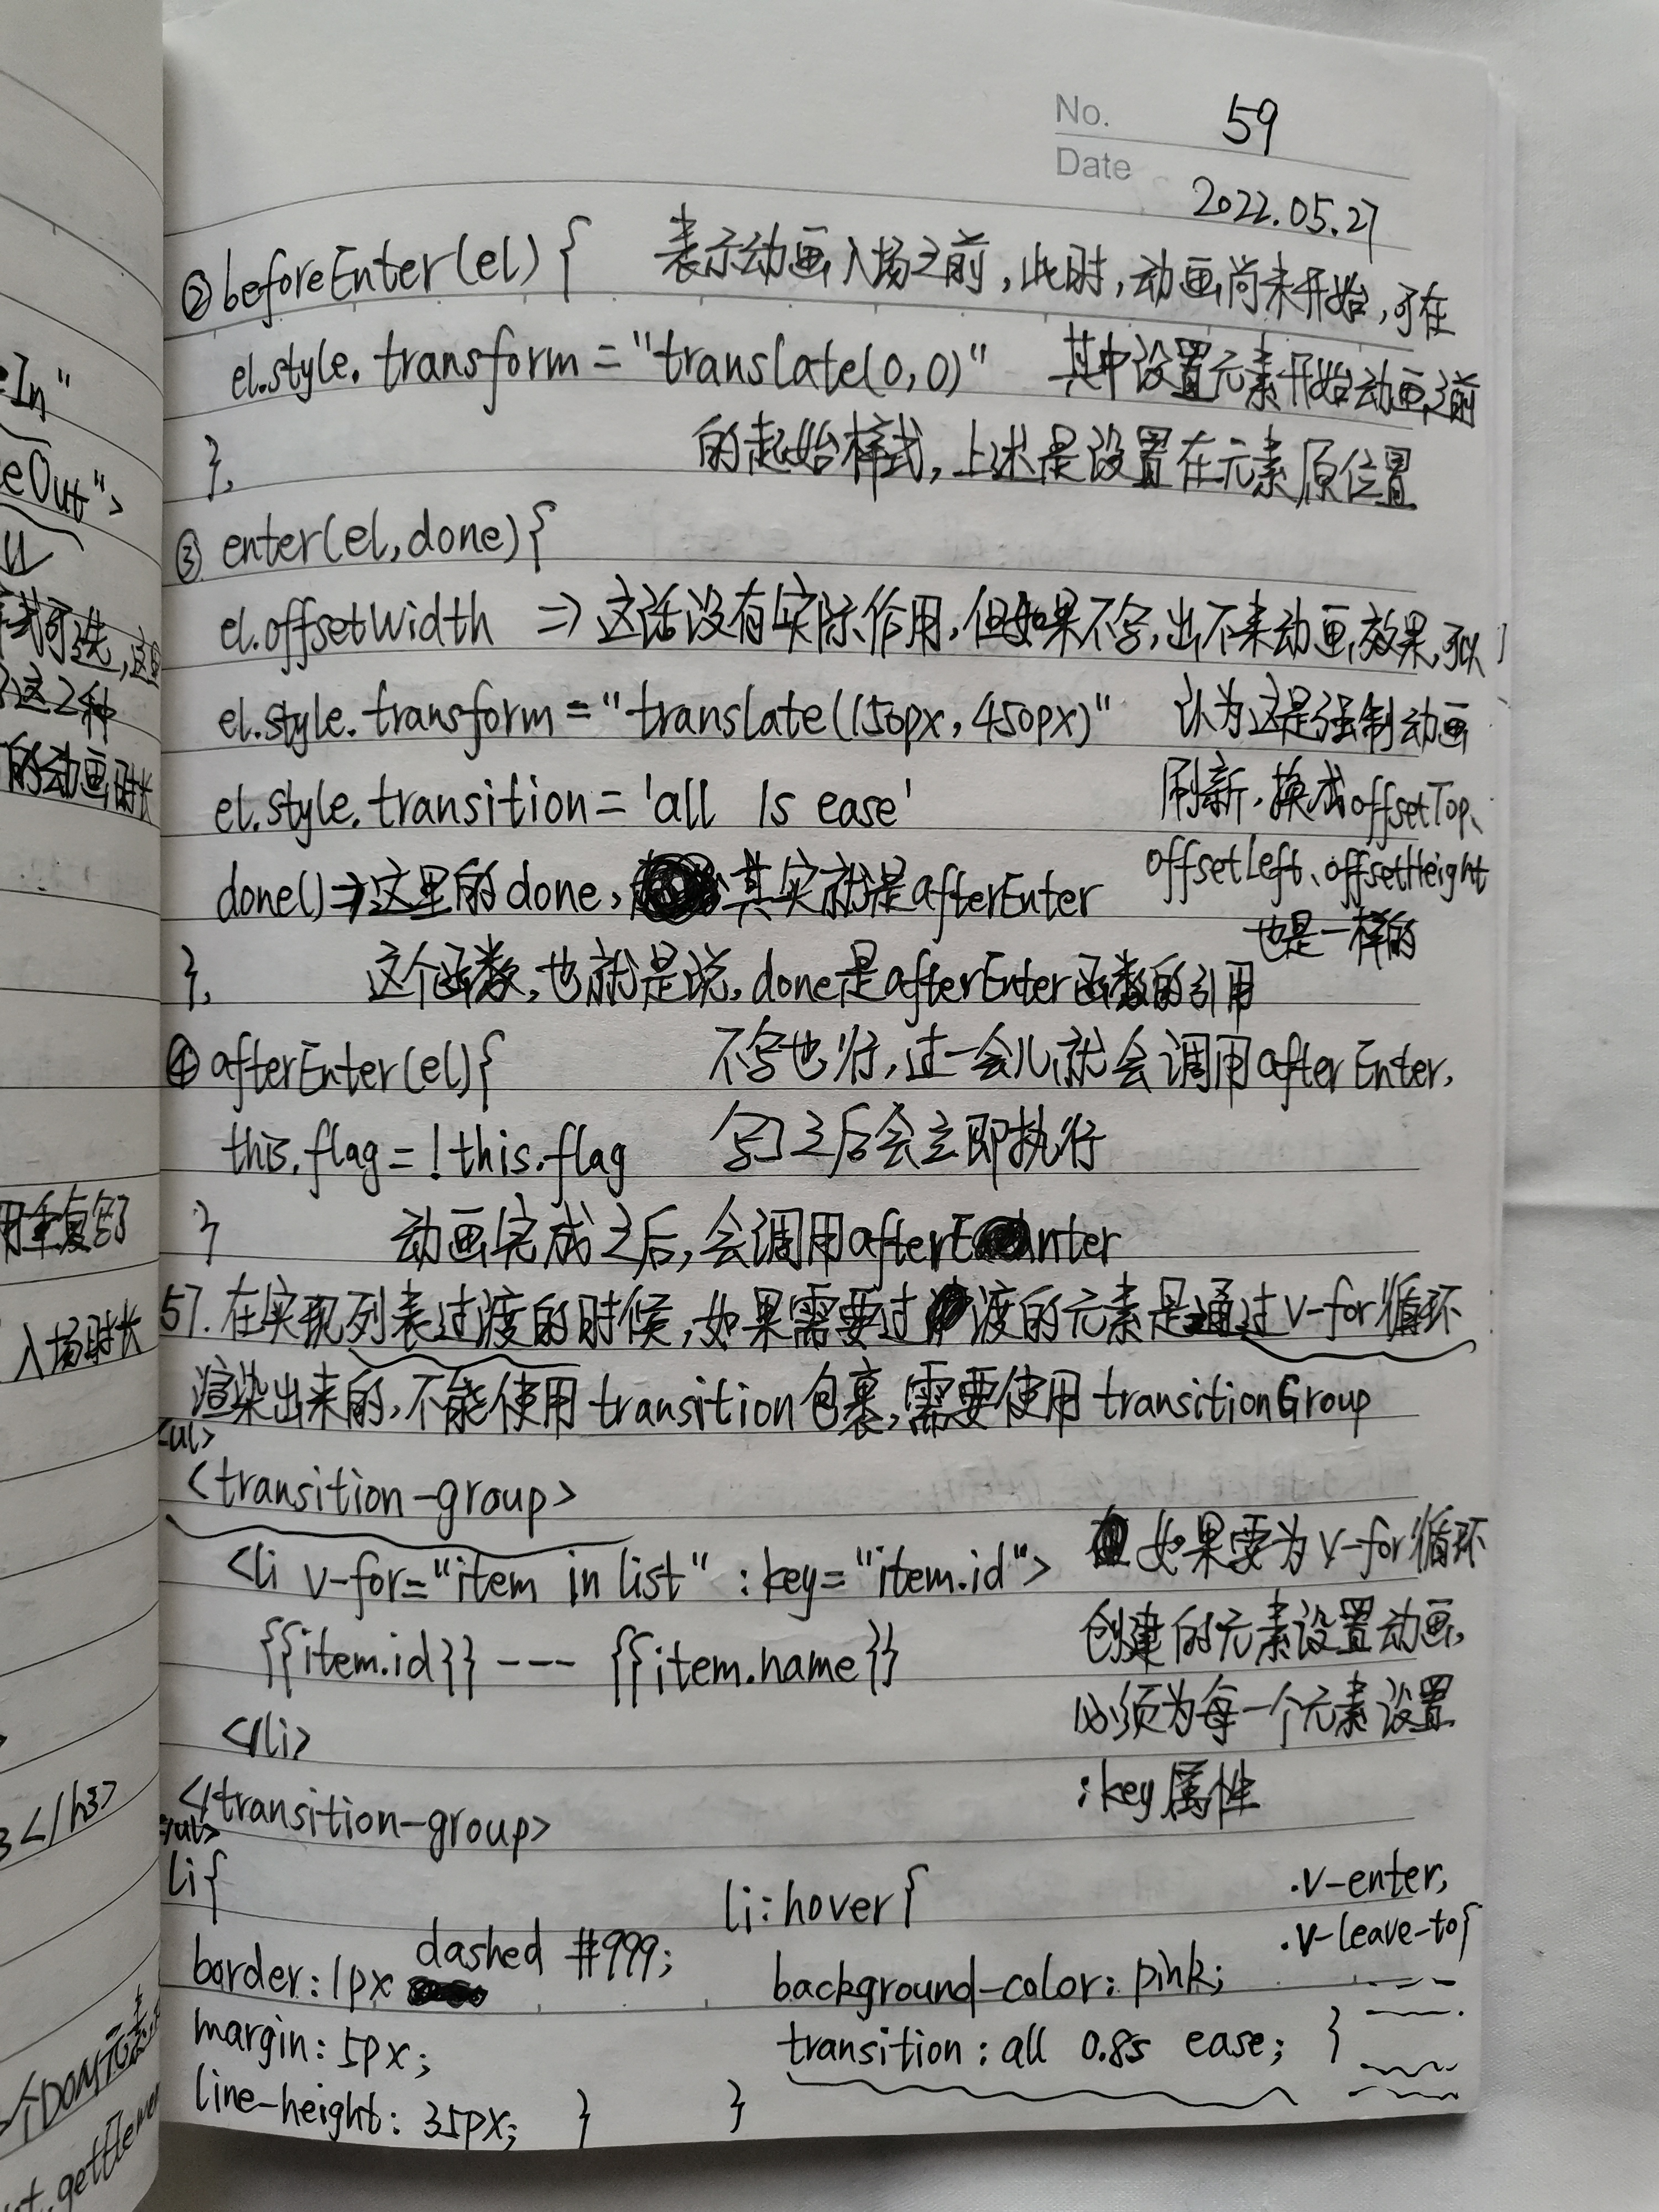 No. 59
Date 2022.05.27
②beforeEnter(el){ 表示动画入场之前,此时,动画尚未开始,可在
el.style.transform="translate(0,0)" 其中设置元素开始动画之前
}, 的起始样式,上述是设置在元素原位置
③ enter(el,done){
el.offsetWidth => 这话没有实际作用,但如果不写,出不来动画效果,可以
el.style.transform="translate(150px,450px)" 认为这是强制动画
el.style.transition='all 1s ease' 刷新,换成offsetTop、
offsetLeft、offsetHeight
done()=>这里的done,其实就是afterEnter
也是一样的
}, 这个函数,也就是说,done是afterEnter函数的引用
④ afterEnter(el){ 不写也行,过一会儿就会调用afterEnter,
this.flag=!this.flag 写了之后会立即执行
} 动画完成之后,会调用afterEnter
57.在实现列表过渡的时候,如果需要过渡的元素是通过v-for循环
渲染出来的,不能使用transition包裹,需要使用transitionGroup
<ul>
<transition-group>
<li v-for="item in list" :key="item.id"> 如果要为v-for循环
{{item.id}} --- {{item.name}} 创建的元素设置动画,
</li> 必须为每一个元素设置
:key属性
</transition-group>
</ul>
li{ li:hover{ .v-enter,
.v-leave-to{
border:1px dashed #999; background-color:pink;
margin:5px; transition:all 0.8s ease; }
line-height:35px; } }
In"
eOut">
式可选,这
这2种
的动画时长
用重复写了
入场时长
</h3>
个DOM元素